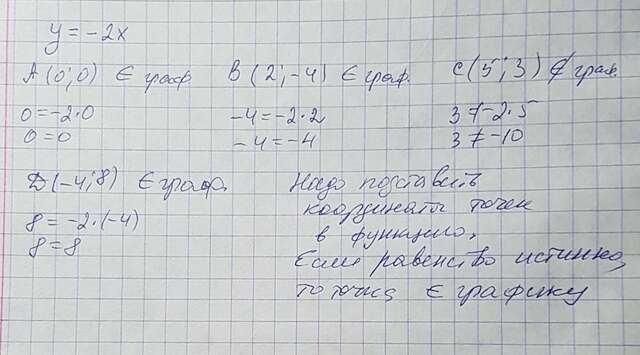 y = -2x
A (0; 0) ∈ граф. B (2; -4) ∈ граф. C (5; 3) ∉ граф.
0 = -2·0 -4 = -2·2 3 ≠ -2·5
0 = 0 -4 = -4 3 ≠ -10
D (-4; 8) ∈ граф.
8 = -2·(-4)
8 = 8
Надо подставить
координаты точек
в функцию,
Если равенство истинно,
то точка ∈ графику